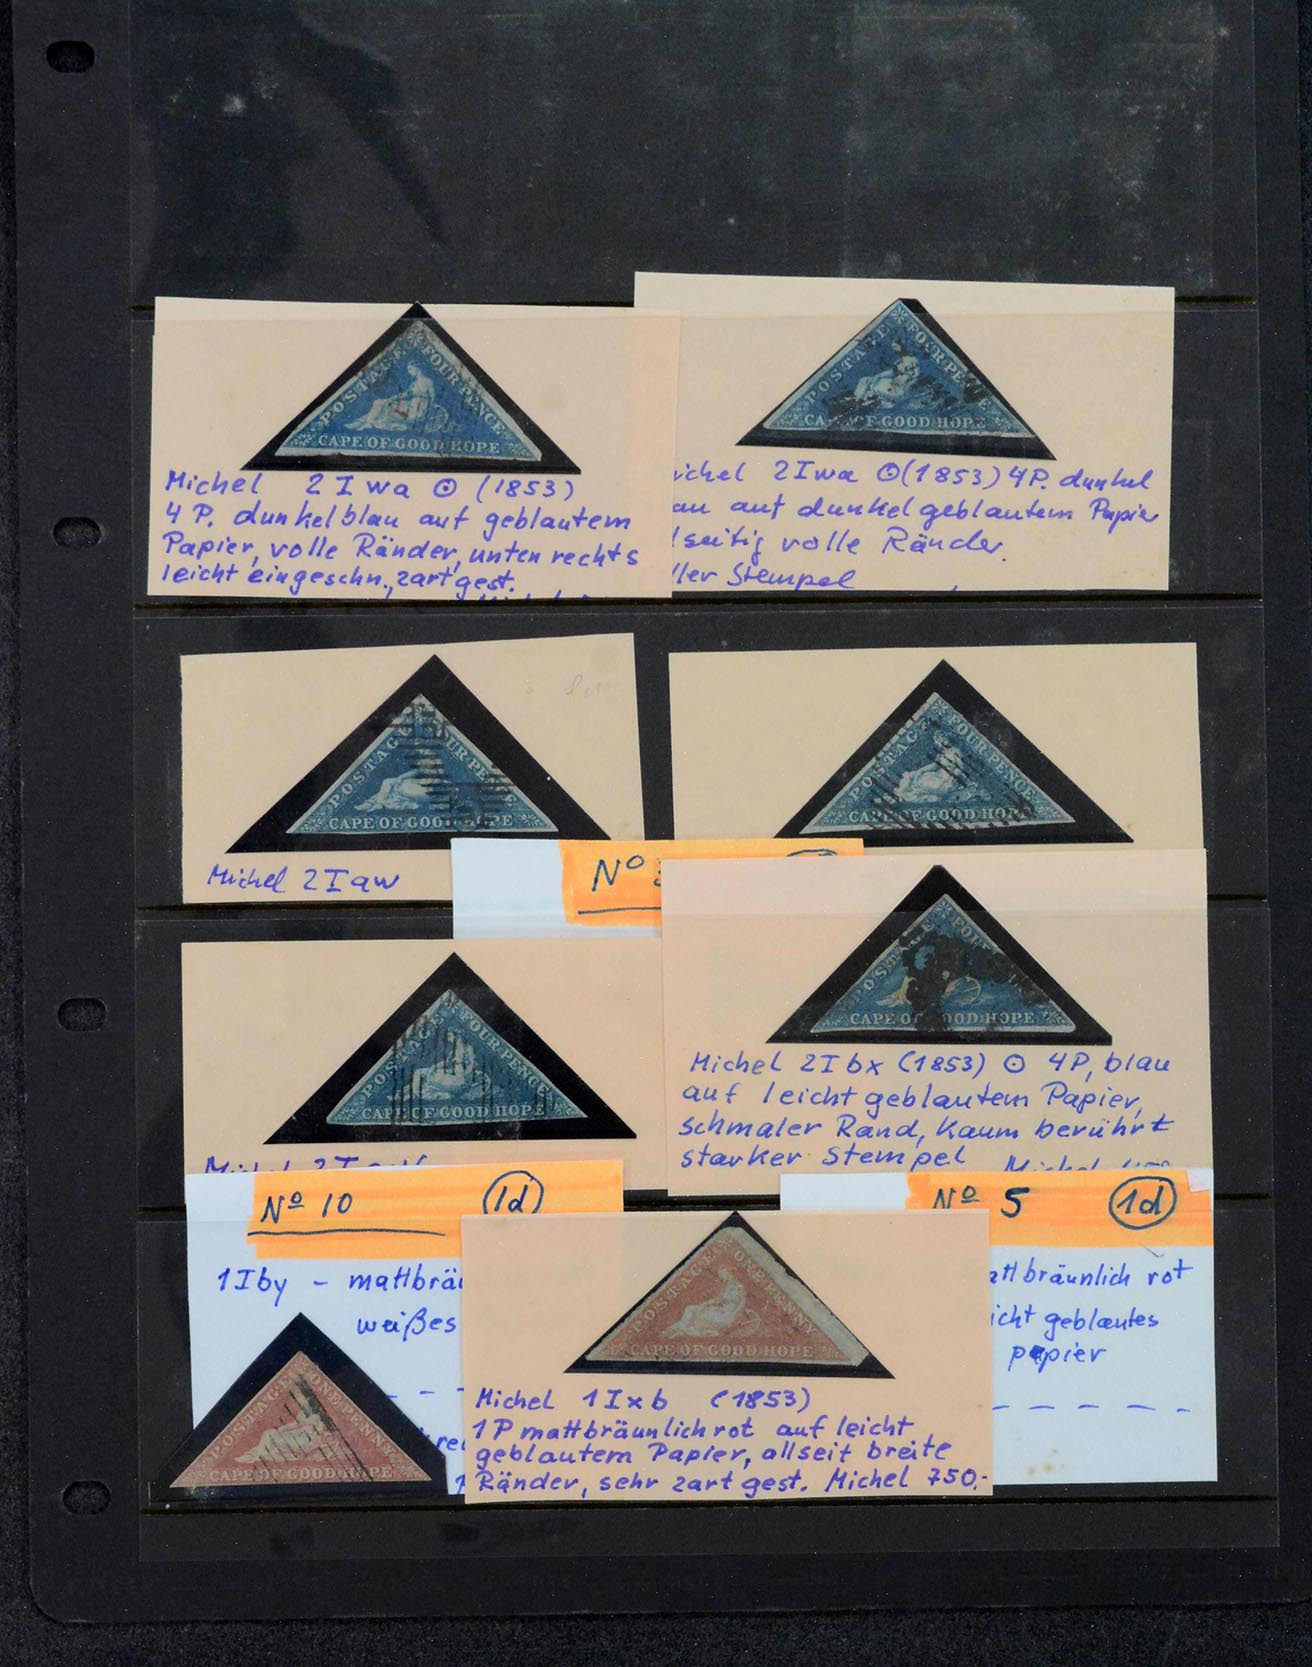 POSTAGE FOUR PENCE
CAPE OF GOOD HOPE
Michel 2 I wa ⊙ (1853)
4 P. dunkelblau auf geblautem
Papier, volle Ränder, unten rechts
leicht eingeschn., zart gest.
POSTAGE FOUR PE
CAPE OF GOOD HOPE
ichel 2 I wa ⊙ (1853) 4 P. dunkel
au auf dunkel geblautem Papier
lseitig volle Ränder.
ller Stempel
POSTAGE FOUR PENCE
CAPE OF GOOD HOPE
Michel 2 I aw
POSTAGE FOUR PENCE
CAPE OF GOOD HOPE
Nº
POSTAGE FOUR PENCE
CAPE OF GOOD HOPE
POSTAGE FOUR
CAPE OF GOOD HOPE
Michel 2 I bx (1853) ⊙ 4 P, blau
auf leicht geblautem Papier,
schmaler Rand, kaum berührt
starker Stempel
Nº 10 1d
1 I by – mattbräu
weißes
POSTAGE ONE PENNY
CAPE OF GOOD HOPE
POSTAGE ONE PENNY
CAPE OF GOOD HOPE
Michel 1 I x b (1853)
1 P mattbräunlichrot auf leicht
geblautem Papier, allseit breite
Ränder, sehr zart gest. Michel 750,-
Nº 5 1d
attbräunlich rot
icht geblautes
papier